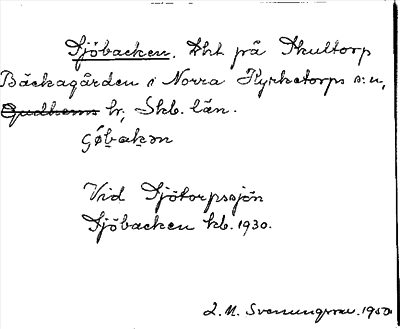 Sjöbacken. Lht på Skultorp
Bäckagården i Norra Kyrketorps s:n,
Gudhems hr, Skb. län.
Vid Sjötorpssjön
Sjöbacken kb. 1930.
L. M. Svenungsson. 1950